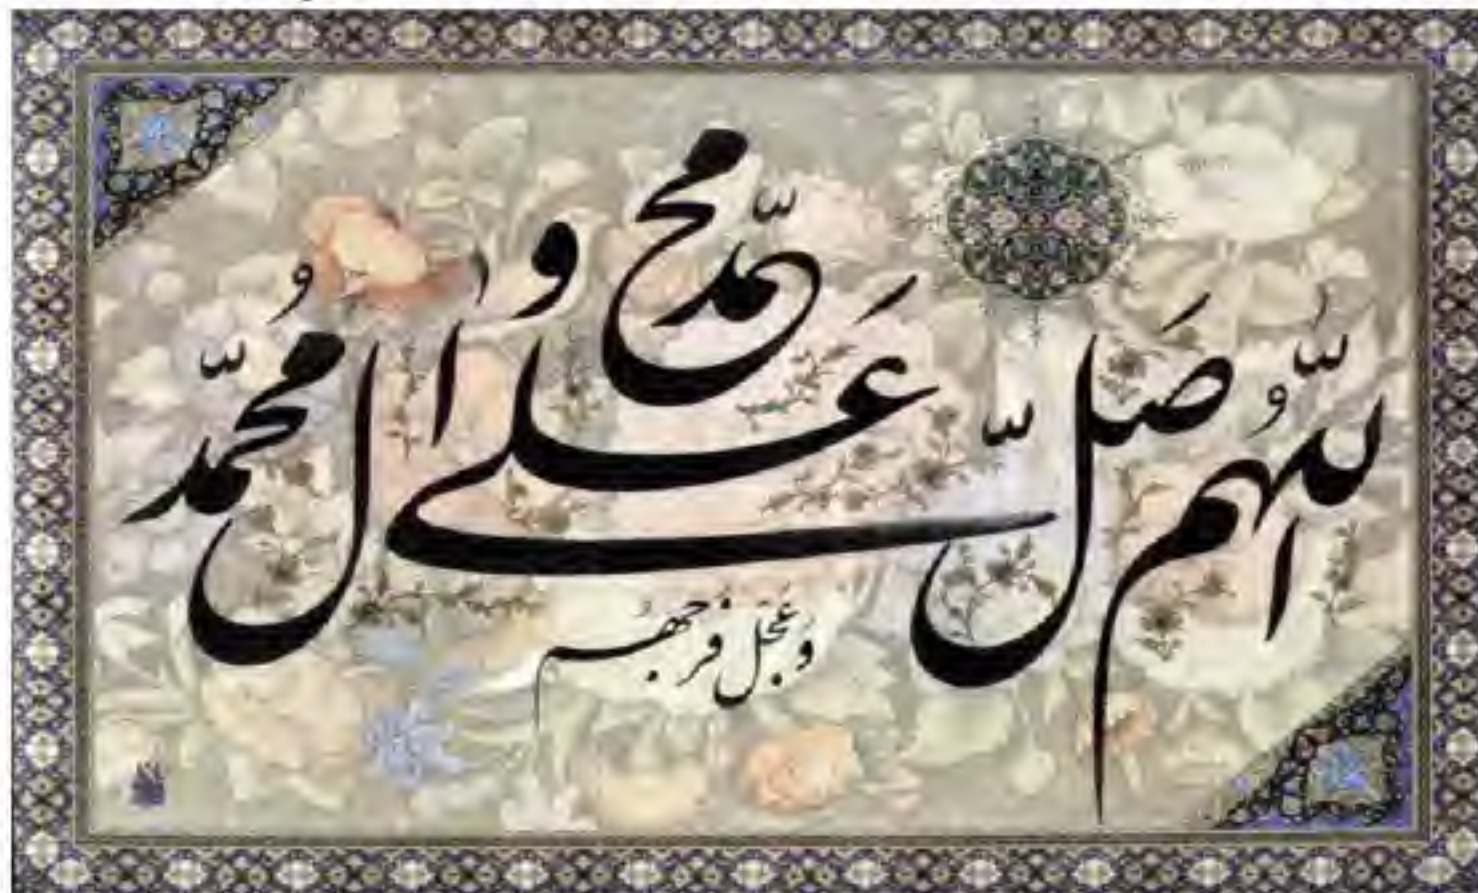 اللّٰهُم صَلّ عَلی محمّد و ال مُحمّد
وَ عَجّل فَرجهُم